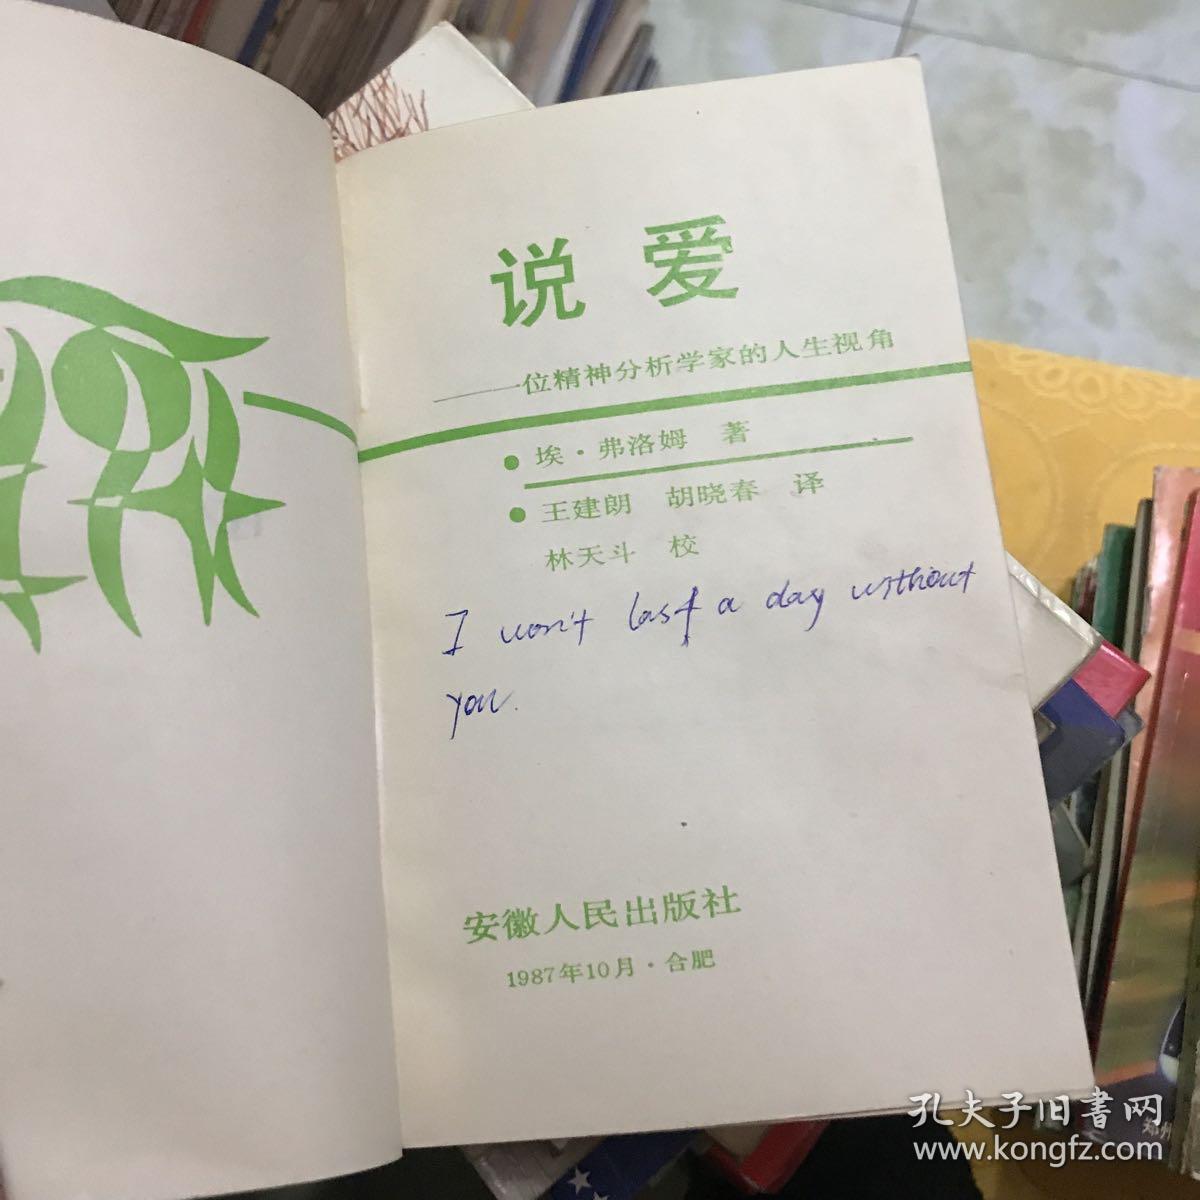 说爱
——一位精神分析学家的人生视角
●埃·弗洛姆 著
●王建朗 胡晓春 译
林天斗 校
I won't last a day without
you.
安徽人民出版社
1987年10月·合肥
孔夫子旧书网
www.kongfz.com